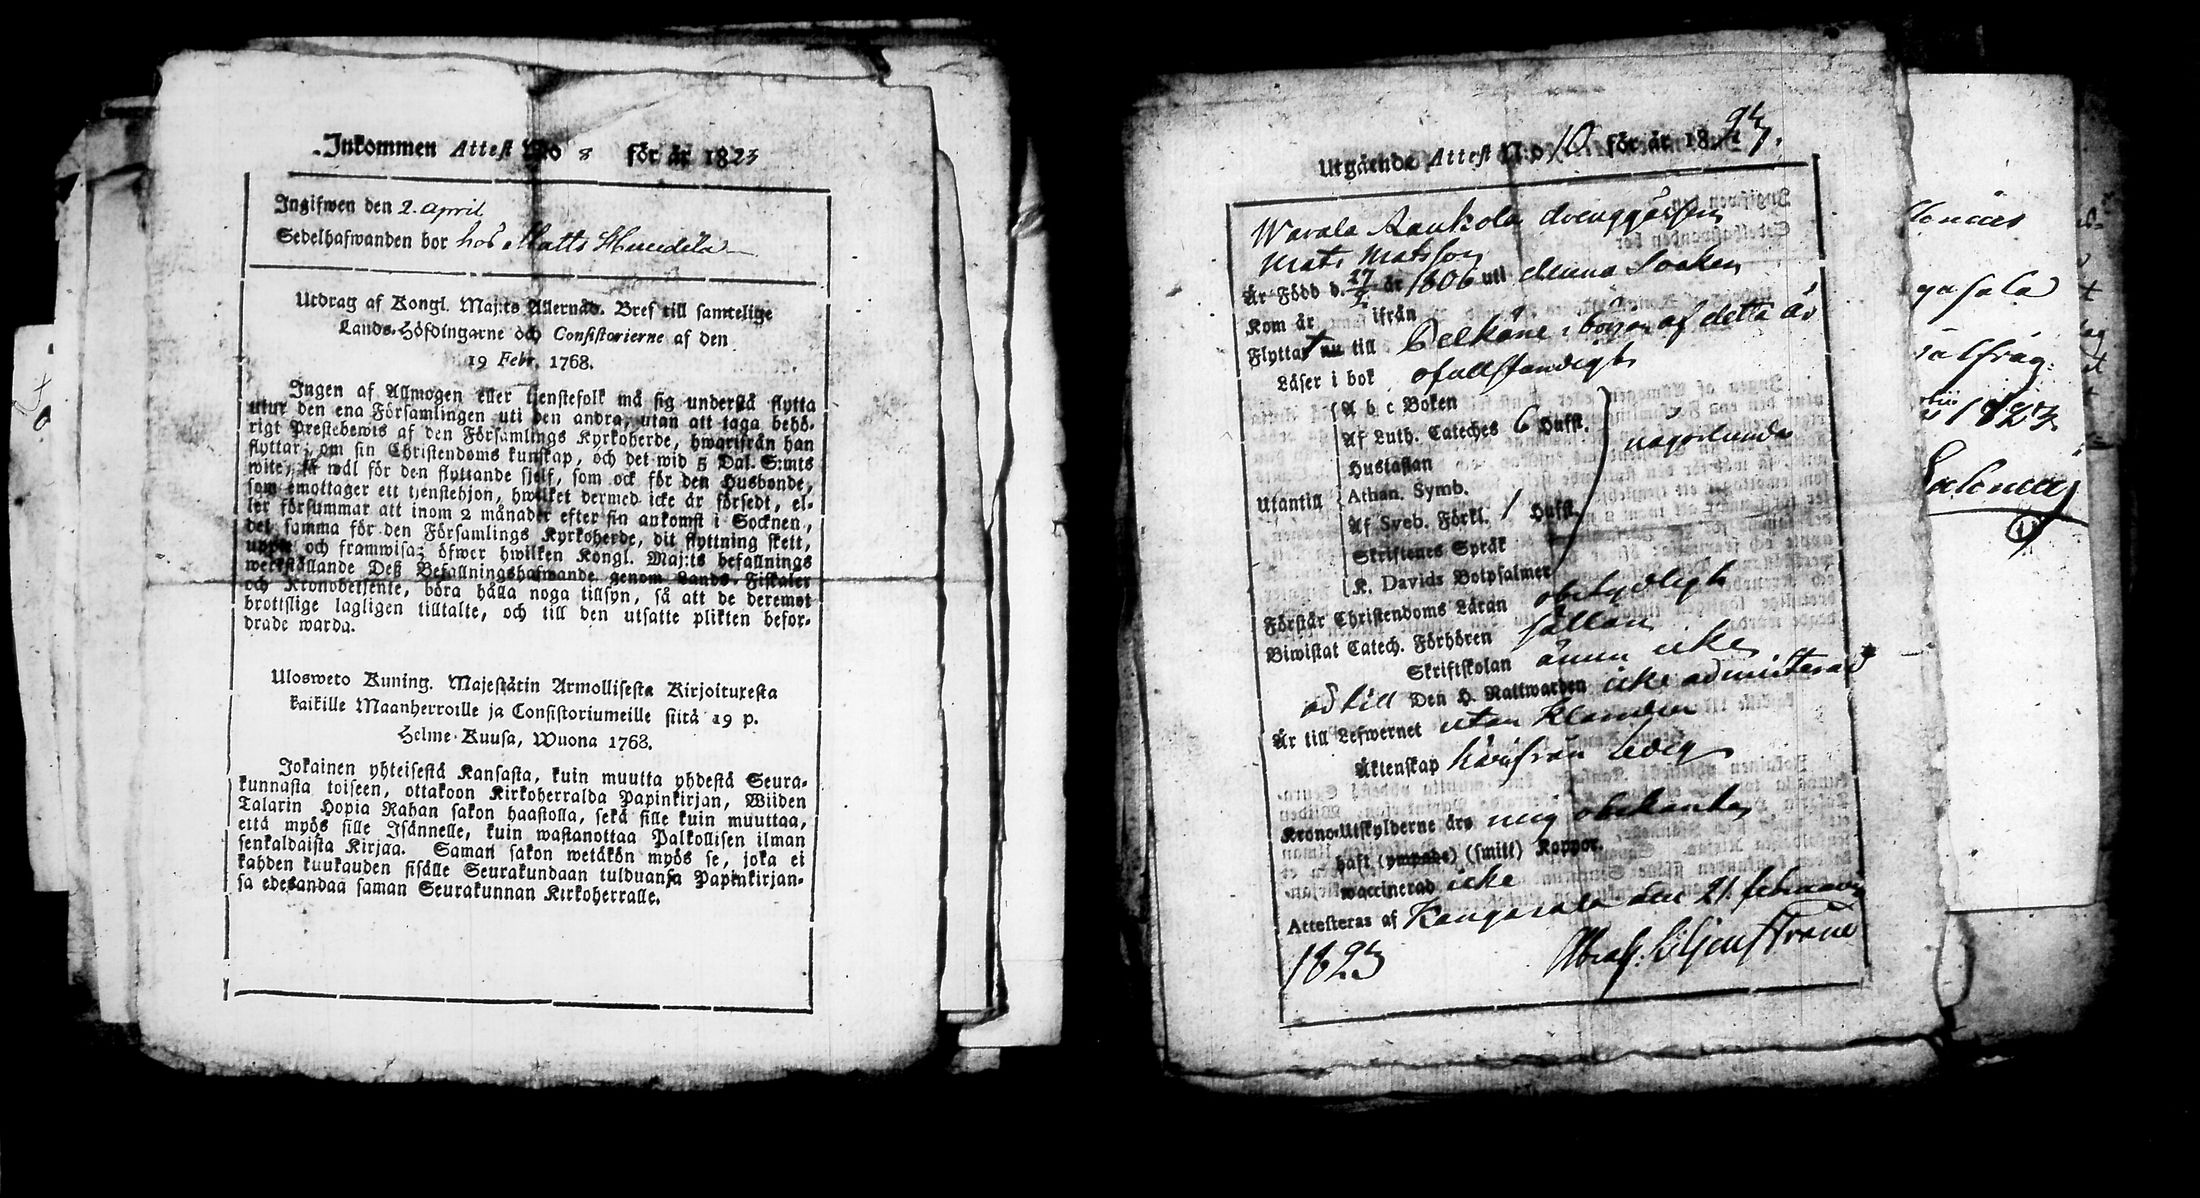 Inkommen Attest No 8 för år 1823
Ingifwen den 2. April
Sedelhafwanden bor hos Matts
Utdrag af Kongl. Maj:ts Allernåd. Bref till samtelige
Lands-Höfdingarne och Consistorierne af den
19 Febr. 1768.
Ingen af Allmogen eller tjenstefolk må sig understå flytta
utur den ena Församlingen uti den andra, utan att taga behö-
rigt Prestebewis af den Församlings Kyrkoherde, hwarifrån han
flyttar, om sin Christendoms kunskap, och det wid 5 Dal. S:mts
wite, så wäl för den flyttande sjelf, som ock för den Husbonde,
som emottager ett tjenstehjon, hwilket dermed icke är försedt, el-
ler försummar att inom 2 månader efter sin ankomst i Socknen,
det samma för den Församlings Kyrkoherde, dit flyttning skett,
uppte och framwisa; öfwer hwilken Kongl. Maj:ts befallnings
werkställande Deß Befallningshafwande genom Lands-Fiskaler
och Kronobetjente, böra hålla noga tillsyn, så att de deremot
brottslige lagligen tilltalte, och till den utsatte plikten befor-
drade warda.
Ulosweto Kuning. Majestätin Armollisesta Kirjoituxesta
kaikille Maanherroille ja Consistoriumeille siitä 19 p.
Helme-Kuusa, Wuona 1768.
Jokainen yhteisestä Kansasta, kuin muutta yhdestä Seura-
kunnasta toiseen, ottakoon Kirkoherralda Papinkirjan, Wiiden
Talarin Hopia Rahan sakon haastolla, sekä sille kuin muuttaa,
että myös sille Isännelle, kuin wastanottaa Palkollisen ilman
senkaldaista Kirjaa. Saman sakon wetäkön myös se, joka ei
kahden kuukauden sisälle Seurakundaan tulduansa Papinkirjan-
sa edesandaa saman Seurakunnan Kirkoherralle.
Utgående Attest N:o 10 för år 1823.
Warala Aaukola drenggåssen
Mats Matsson
Är Född d. 27/2 år 1806 uti denna Socken
Kom år ifrån
Flyttat nu till Pelkäne i början af detta år
Läser i bok ofullständigt
Utantill
A b c Boken
Af Luth. Cateches 6 Hufst.
Hustaflan
Athan. Symb.
Af Sveb. Förkl. 1 Hufst.
Skriftenes Språk
K. Davids Botpsalmer
någorlunda
Förstår Christendoms Läran obetydligt
Biwistat Catech. Förhören sällan
Skriftskolan ännu icke
och till Den H. Nattwarden icke admitterad
Är till Lefwernet utan klander
Äktenskap härifrån ledig
Krono-Utskylderne äro mig obekanta
haft (ympade) (smitt) Koppor.
waccinerad icke
Attesteras af Kangasala den 21. februarii
1823 Abrah. Liljenstrand
1823